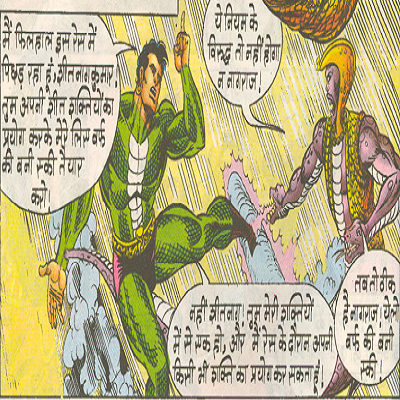 मैं फिलहाल इस रेस में
पिछड़ रहा हूं, शीतनागकुमार!
तुम अपनी शीत शक्तियों का
प्रयोग करके मेरे लिए बर्फ
की बनी स्की तैयार
करो!
ये नियम के
विरुद्ध तो नहीं होगा
न नागराज!
नहीं शीतनाग! तुम मेरी शक्तियों
में से एक हो, और मैं रेस के दौरान अपनी
किसी भी शक्ति का प्रयोग कर सकता हूं!
तब तो ठीक
है नागराज! ये लो
बर्फ की बनी
स्की!